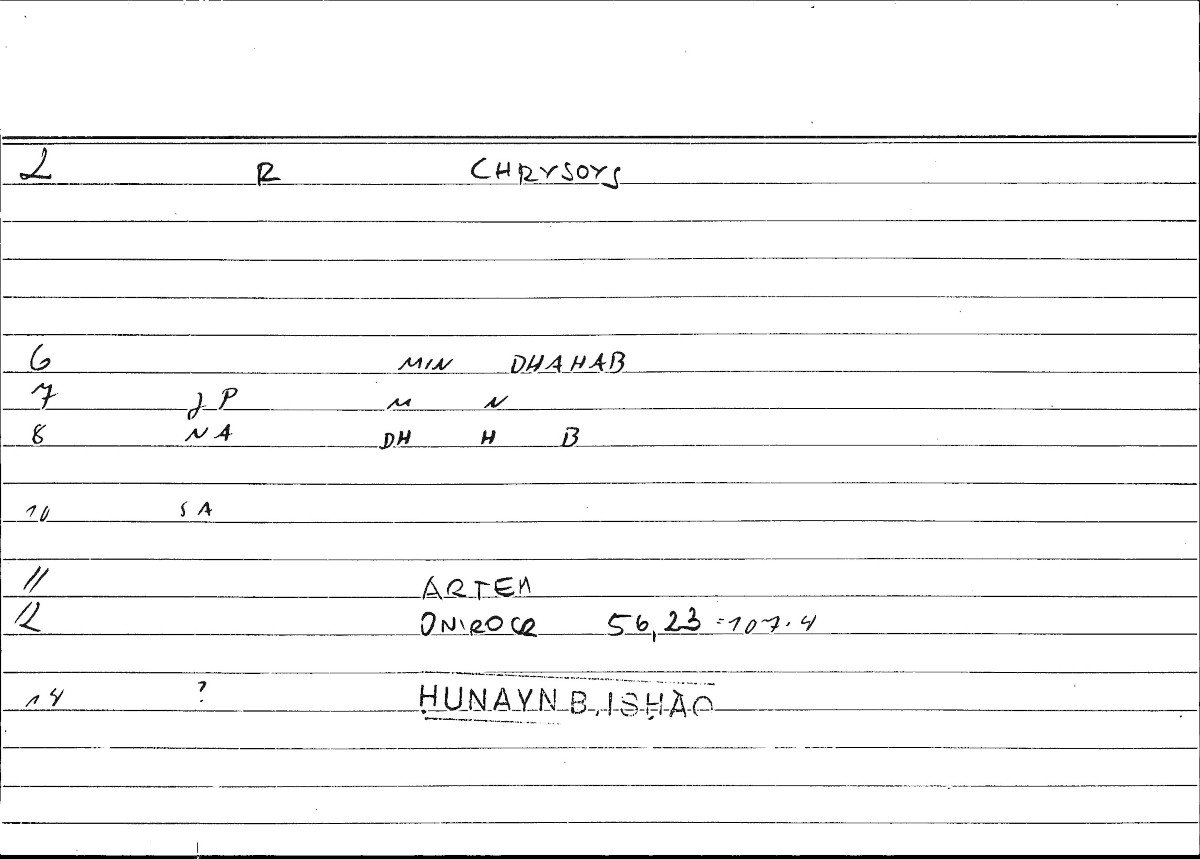 2 R CHRYSOYS
6 MIN DHAHAB
7 JP M N
8 NA DH H B
10 SA
11 ARTEM
12 ONIROCR 56,23=107.4
14 ? ḤUNAYN B. ISḤĀQ